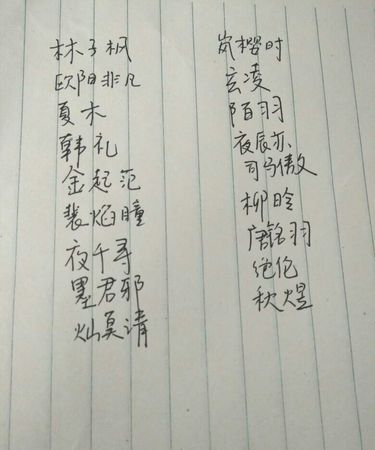 林子枫
欧阳非凡
夏木
韩礼
金起范
裴焰瞳
夜千寻
墨君邪
灿莫清
岚樱时
玄凌
陌羽
夜辰亦
司马傲
柳晗
唐铭羽
绝伦
秋煜